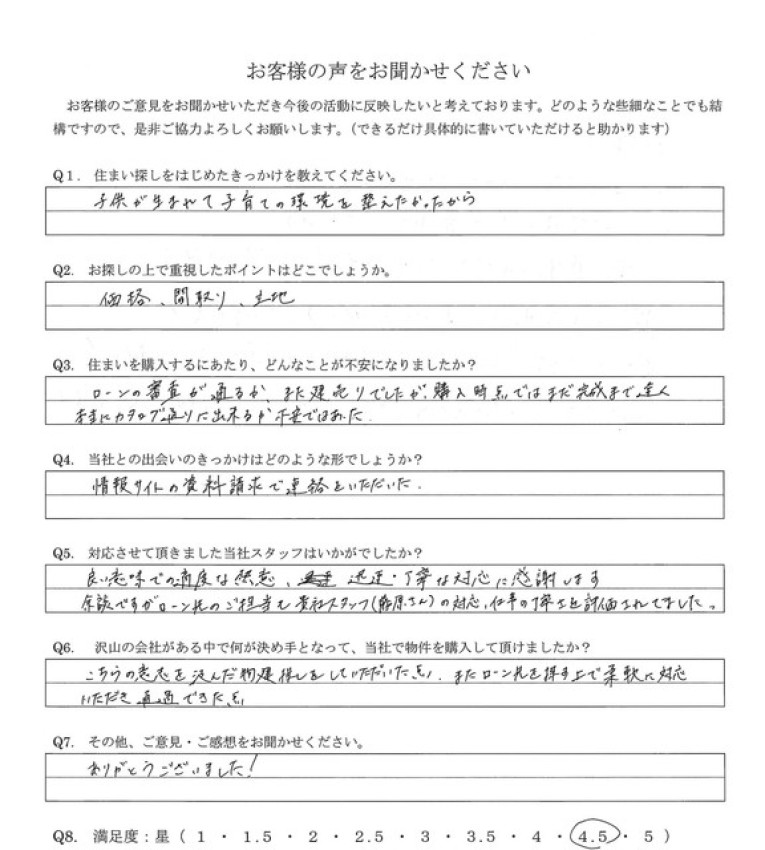 お客様の声をお聞かせください
お客様のご意見をお聞かせいただき今後の活動に反映したいと考えております。どのような些細なことでも結
構ですので、是非ご協力よろしくお願いします。（できるだけ具体的に書いていただけると助かります）
Q1. 住まい探しをはじめたきっかけを教えてください。
子供が生まれて子育ての環境を整えたかったから
Q2. お探しの上で重視したポイントはどこでしょうか。
価格、間取り、立地
Q3. 住まいを購入するにあたり、どんなことが不安になりましたか？
ローンの審査が通るか、また建売りでしたが、購入時点ではまだ完成まで
本当にカタログ通りに出来るか不安ではあった。
Q4. 当社との出会いのきっかけはどのような形でしょうか？
情報サイトの資料請求で連絡をいただいた。
Q5. 対応させて頂きました当社スタッフはいかがでしたか？
良い意味での適度な、迅速・丁寧な対応に感謝します
余談ですがローン先のご担当も貴社スタッフ(藤原さん)の対応、仕事の丁寧さを評価されてました。
Q6. 沢山の会社がある中で何が決め手となって、当社で物件を購入して頂けましたか？
こちらの意志を汲んだ物件探しをしていただいた点、またローン先を探す上で柔軟に対応
いただき融通できた点
Q7. その他、ご意見・ご感想をお聞かせください。
ありがとうございました！
Q8. 満足度：星（ 1 ・ 1.5 ・ 2 ・ 2.5 ・ 3 ・ 3.5 ・ 4 ・ 4.5 ・ 5 ）